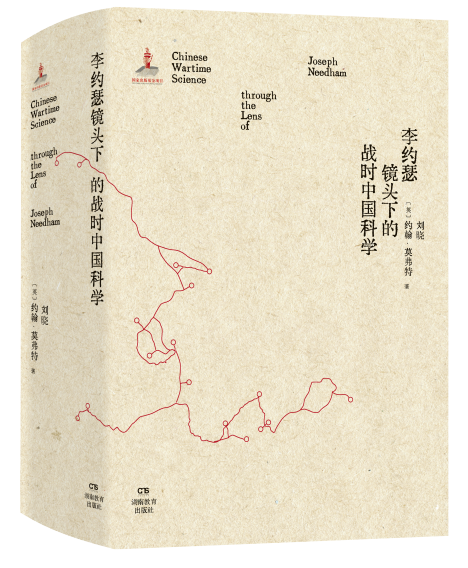 Chinese
Wartime
Science
through
the
Lens
of
Joseph
Needham
李约瑟镜头下的战时中国科学
刘晓
〔英〕约翰·莫弗特 著
湖南教育
出版社
Chinese
Wartime
Science
Joseph
Needham
through
the
Lens
of
李约瑟
镜头下的
战时中国科学
刘晓
〔英〕约翰·莫弗特 著
湖南教育
出版社